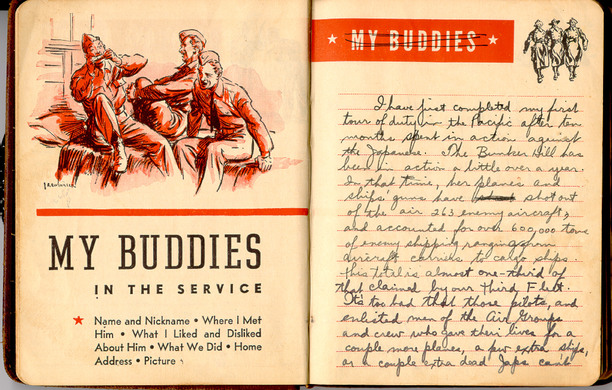 MY BUDDIES
IN THE SERVICE
Name and Nickname • Where I Met
Him • What I Liked and Disliked
About Him • What We Did • Home
Address • Picture
MY BUDDIES
I have just completed my first
tour of duty in the Pacific after ten
months spent in action against
the Japanese. The Bunker Hill has
been in action a little over a year.
In that time, her planes and
ships guns have shot out
of the air 263 enemy aircraft,
and accounted for over 600,000 tons
of enemy shipping ranging from
aircraft carriers to cargo ships.
This total is almost one-third of
that claimed by our Third Fleet.
Its too bad that those pilots, and
enlisted men of the Air Groups
and crew who gave their lives for a
couple more planes, a few extra ships,
or a couple extra dead Japs cant